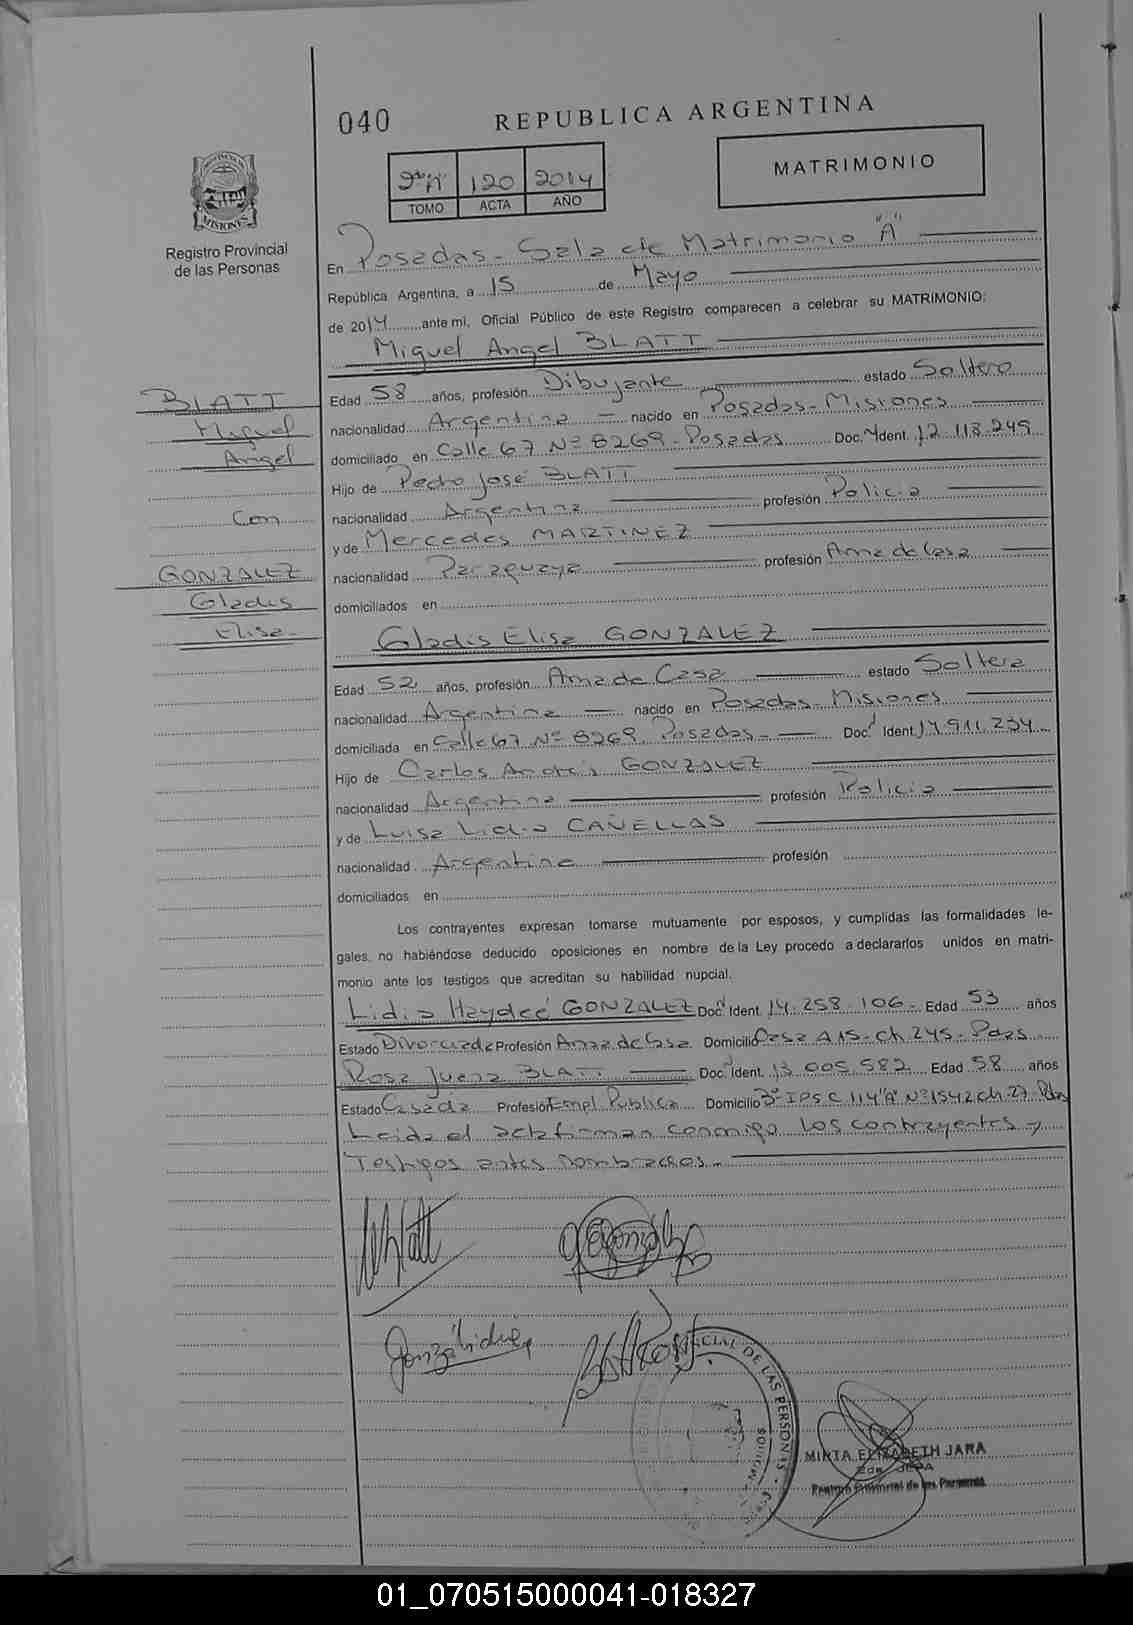 040
REPUBLICA ARGENTINA
MATRIMONIO
120 2014
TOMO ACTA AÑO
PROVINCIA DE MISIONES
Registro Provincial
de las Personas
En Posadas - Sala de Matrimonio "A"
República Argentina, a 15 de Mayo
de 2014 ante mi, Oficial Público de este Registro comparecen a celebrar su MATRIMONIO:
Miguel Angel BLATT
BLATT
Miguel
Angel
Con
GONZALEZ
Gladis
Elisa -
Edad 58 años, profesión Dibujante estado Soltero
nacionalidad Argentina - nacido en Posadas - Misiones
domiciliado en Calle 67 Nº 8269 - Posadas Doc. Ident. 12.118.249
Hijo de Pedro José BLATT
nacionalidad Argentina profesión Policia
y de Mercedes MARTINEZ
nacionalidad Paraguaya profesión Ama de Casa
domiciliados en
Gladis Elisa GONZALEZ
Edad 52 años, profesión Ama de Casa estado Soltera
nacionalidad Argentina - nacido en Posadas - Misiones
domiciliada en Calle 67 Nº 8269 Posadas - Doc. Ident. 14.911.234
Hijo de Carlos Andrés GONZALEZ
nacionalidad Argentina profesión Policia
y de Luisa Lidia CAÑELLAS
nacionalidad Argentina profesión
domiciliados en
Los contrayentes expresan tomarse mutuamente por esposos, y cumplidas las formalidades le-
gales, no habiéndose deducido oposiciones en nombre de la Ley procedo a declararlos unidos en matri-
monio ante los testigos que acreditan su habilidad nupcial.
Lidia Haydeé GONZALEZ Doc. Ident. 14.258.106 - Edad 53 años
Estado Divorciada Profesión Ama de Casa Domicilio Casa A 15 - ch. 245 - Pdas
Rosa Juana BLATT Doc. Ident. 13.005.582 Edad 58 años
Estado Casada Profesión Empl. Publica Domicilio Nº 1542 ch. 27 - Pdas
Leida el acta firman conmigo los contrayentes y
Testigos antes nombrados -
MIRTA ELIZABETH JARA
2da JEFA
Registro Provincial de las Personas
01_070515000041-018327